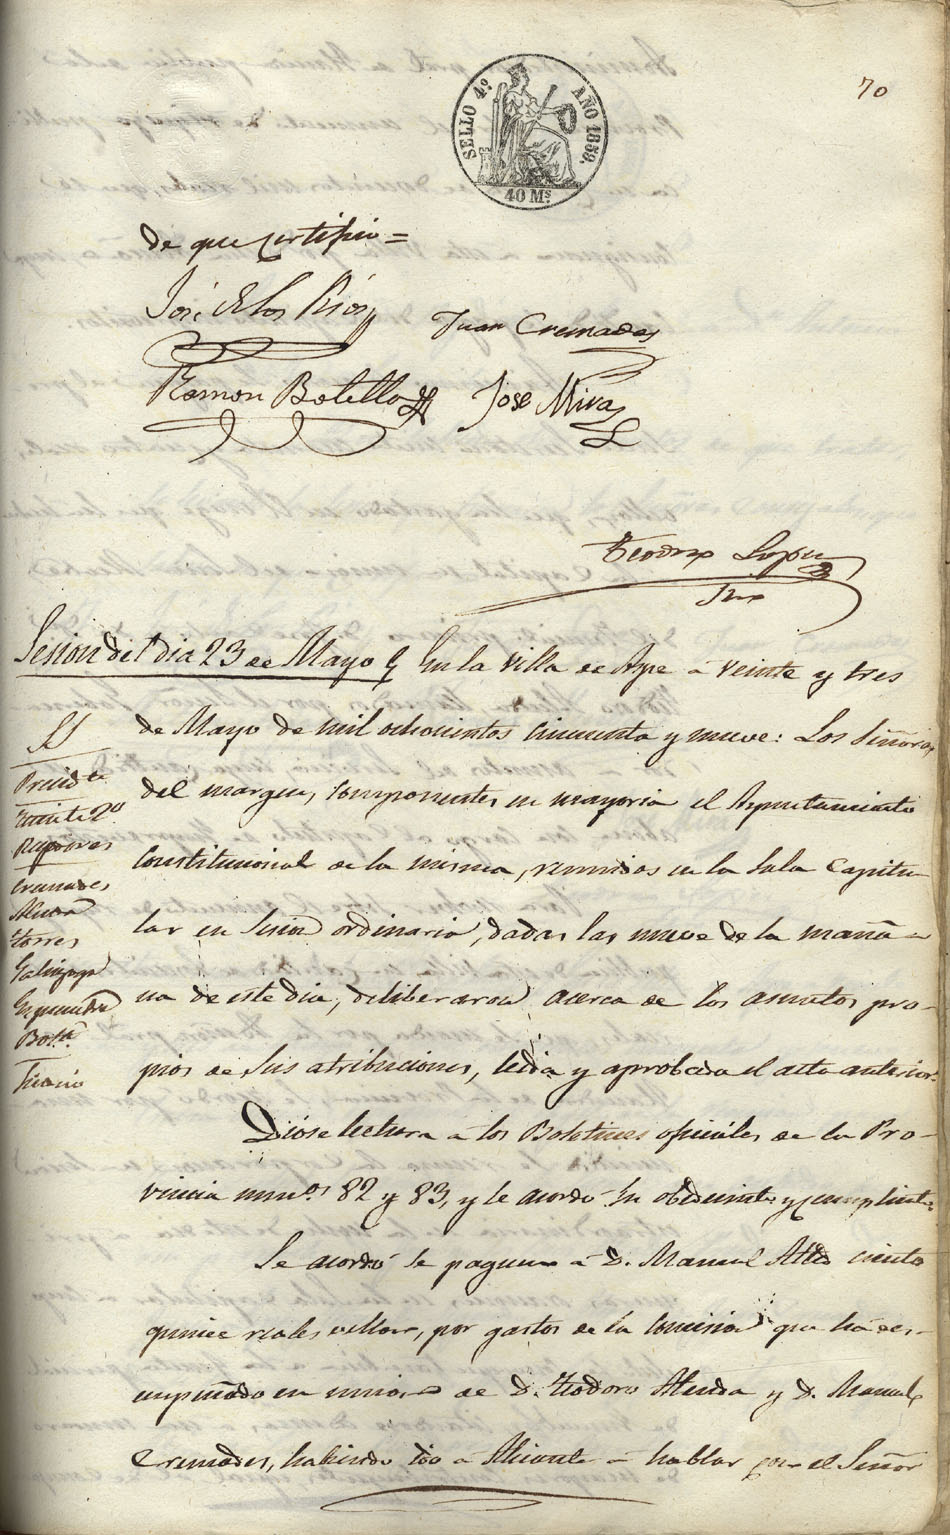 70
SELLO 4º AÑO 1859.
40 Ms
de que certifico =
José de los Rios
Juan Cremades
Ramon Botella
José Mira
Teodoro Lopez
Srio
Sesion del dia 23 de Mayo
En la villa de Aspe á veinte y tres
de Mayo de mil ochocientos cincuenta y nueve: Los Señores
del margen, componentes en mayoria el Ayuntamiento
constitucional de la misma, reunidos en la Sala Capitu-
lar en Sesion ordinaria, dadas las nueve de la maña-
na de este dia, deliberaron acerca de los asuntos pro-
pios de sus atribuciones, leida y aprobada el acta anterior.
SS
Presidte
Tente 2º
Regidores
Cremades
Torres
Galinzoga
Botª
Dióse lectura á los Boletines oficiales de la Pro-
vincia numos 82 y 83, y se acordó su obedecimto y cumplimto
Se acordó se paguen á D. Manuel Alted ciento
quince reales vellon, por gastos de la comision que ha des-
empeñado en union de D. Teodoro Alenda y D. Manuel
Cremades, habiendo ido á Alicante á hablar con el Señor